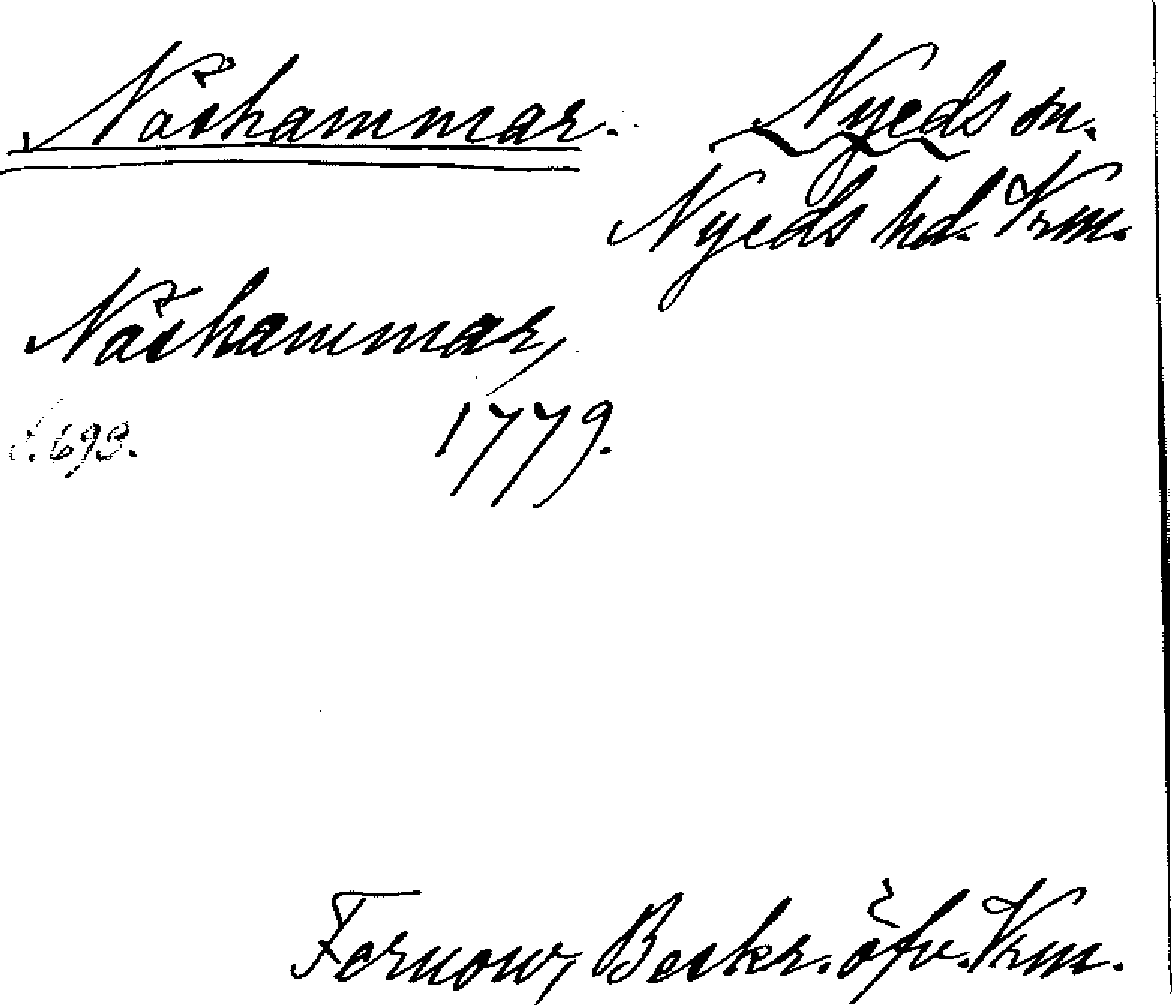 Näshammar. Nyeds sn.
Nyeds hd. Vrm.
Näshammar,
s. 693. 1779.
Fernow, Beskr. öfv. Vrm.